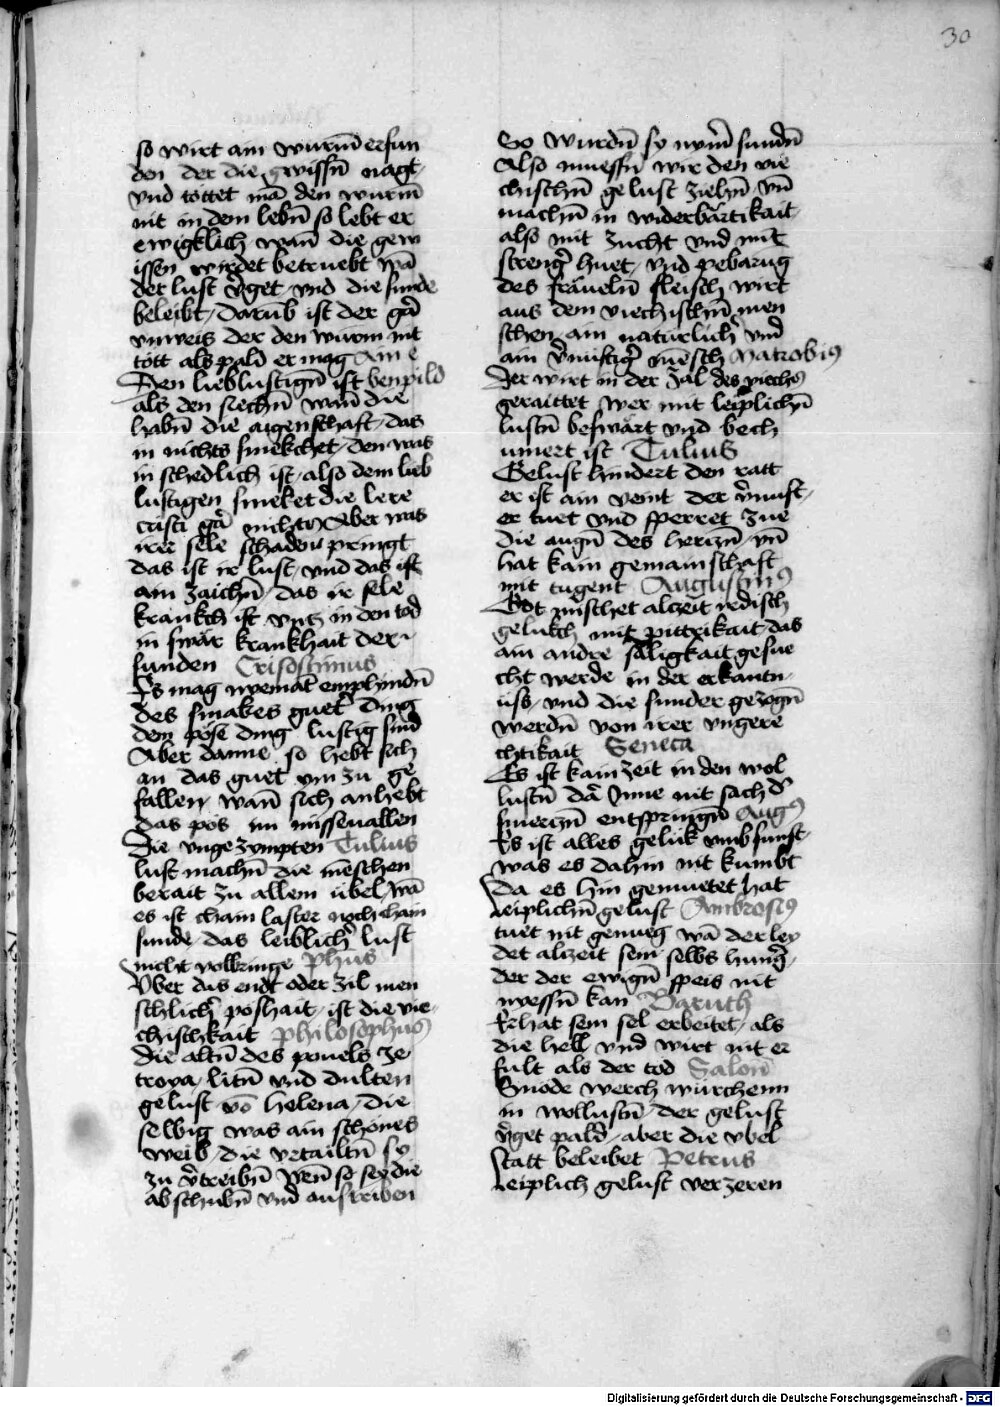 30
so wirt ain wurm̄ erfun
den der die gwissn̄ nagt
vnd tottet mā den wurm̄
nit in dem lebn̄ so lebt er
ewigklich wan̄ die gew
issen wirdet betruebt wā
der lust v̄get vnd die sunde
beleibt, Darub̄ ist der gar̄
vnweis der den wurm nit
tott als pald er mag
Den lieblustign̄ ist benpild
als den siechn̄ wan̄ die
habn̄ die aigenschaft, das
in nichts smekchet, den was
in schedlich ist, also dem lieb
lustigen smeket die lere
cristi gar̄ nichts Aber was
irer sele schaden pringt
das ist ir lust, vnd das ist
ain zaichn̄, das ir sele
krankch ist vntz in den tod
in swar krankhait der
sunden Crisostimus
Es mag nyemāt emphindn̄
des smakes guet ding
dem pöse ding lustig sind
Aber danne so hebt sich
an das guet vm zu ge
fallen, wan̄ sich anhebt
das pös im missenallen
Die vngezympten Tulius
lust machn̄ die menschen
berait zu allem übel, wā
es ist chain laster noch chain
sunde, das leiblich̄ lust
nicht volbringe Phus
Vber das endt oder zil men
schlich̄ poshait, ist die vie
chischkait Philosophus
Die altn̄ des pouels ze
troya, litn̄ vnd dulten
gelust vō helena, die
selbig was ain schönes
weib, die vrtailtn̄ sy
zu v̄treibn̄ wen̄ so sey die
abschubn̄ vnd austriben
So wurdn̄ sy nym̄ sundn̄
Also muessn̄ wir den vie
chischn̄ gelust zieln̄ vn̄
machn̄ in widerbärtikait
also mit zucht vnd mit
strenḡ huet, vnd pebarūg
des fräueln̄ fleisch wirt
aus dem viechischn̄ men
schen ain naturlich̄ vnd
ain v̄nuftiḡ mesch Matrobius
Der wirt in der zal des viechs
geraittet wer mit leiplichn̄
lustn̄ beswärt vnd bech
umert ist Tulius
Gelust hindert den ratt
er ist ain veint der v̄nuft,
er tuet vnd sperret zue
die augn̄ des hertzn̄ vn̄
hat kain gemainschaft
mit tugent Augustinus
Got mischet alzeit irdisch
gelukch mit pittrikait, das
ain andre säligkait gesue
cht werde in der erkantn
üss, vnd die sunder gezogn̄
werdn̄ von irer vngere
chtikait Seneca
Es ist kain zeit in den wol
lustn̄ dar̄ Inne nit sach d̄
smertzn̄ entspringn̄ Augus
Es ist alles gelük vmb sunst,
was es dahin nit kumbt
Da es hin gemuetet hat
Leiplichn̄ gelust Ambrosius
tuet nit genueg wā der ley
det alzeit sein selbs hunḡ,
der der ewign̄ speis nit
niessn̄ kan Baruth
Er hat sein sel erbeitet, als
die hell vnd wirt nit er
fult als der tod Salon̄
Snode werch würchenn
in wollustn̄, der gelust
v̄get pald, aber die vbel
statt beleibet Petrus
Leiplich gelust verzeren
Digitalisierung gefördert durch die Deutsche Forschungsgemeinschaft - DFG